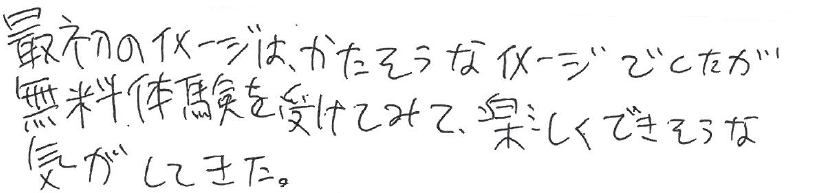 最初のイメージは、かたそうなイメージでしたが
無料体験を受けてみて、楽しくできそうな
気がしてきた。